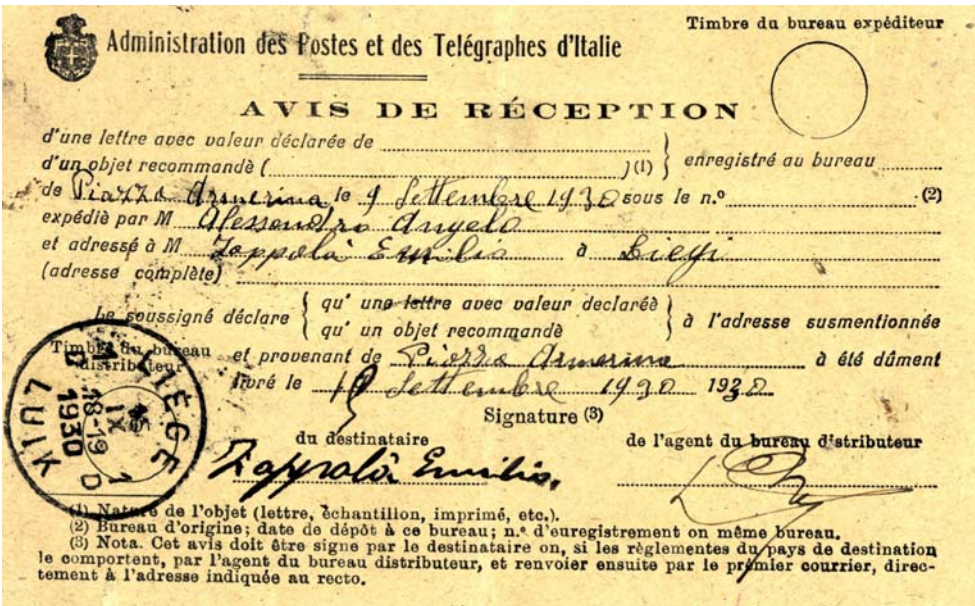 Timbre du bureau expéditeur
Administration des Postes et des Telégraphes d'Italie
AVIS DE RÉCEPTION
d'une lettre avec valeur déclarée de
d'un objet recommandè ( )(1) } enregistré au bureau
de Piazza Armerina le 9 Settembre 1930 sous le n.º (2)
expédiè par M Alessandro Angelo
et adressé à M Zappalà Emilio à Liegi
(adresse complète)
Le soussigné déclare { qu' une lettre avec valeur declaréè }
qu' un objet recommandè à l'adresse susmentionnée
Timbre du bureau distributeur
et provenant de Piazza Armerina à été dûment
livré le Settembre 1930 1930
Signature (3)
du destinataire
de l'agent du bureau distributeur
Zappalà Emilio.
LIÉGE 1
LUIK
18-19
IX
1930
(1) Nature de l'objet (lettre, échantillon, imprimé, etc.).
(2) Bureau d'origine; date de dépôt à ce bureau; n.º d'euregistrement on même bureau.
(3) Nota. Cet avis doit être signe par le destinataire on, si les règlementes du pays de destination
le comportent, par l'agent du bureau distributeur, et renvoier ensuite par le prémier courrier, direc-
tement à l'adresse indiquée au recto.